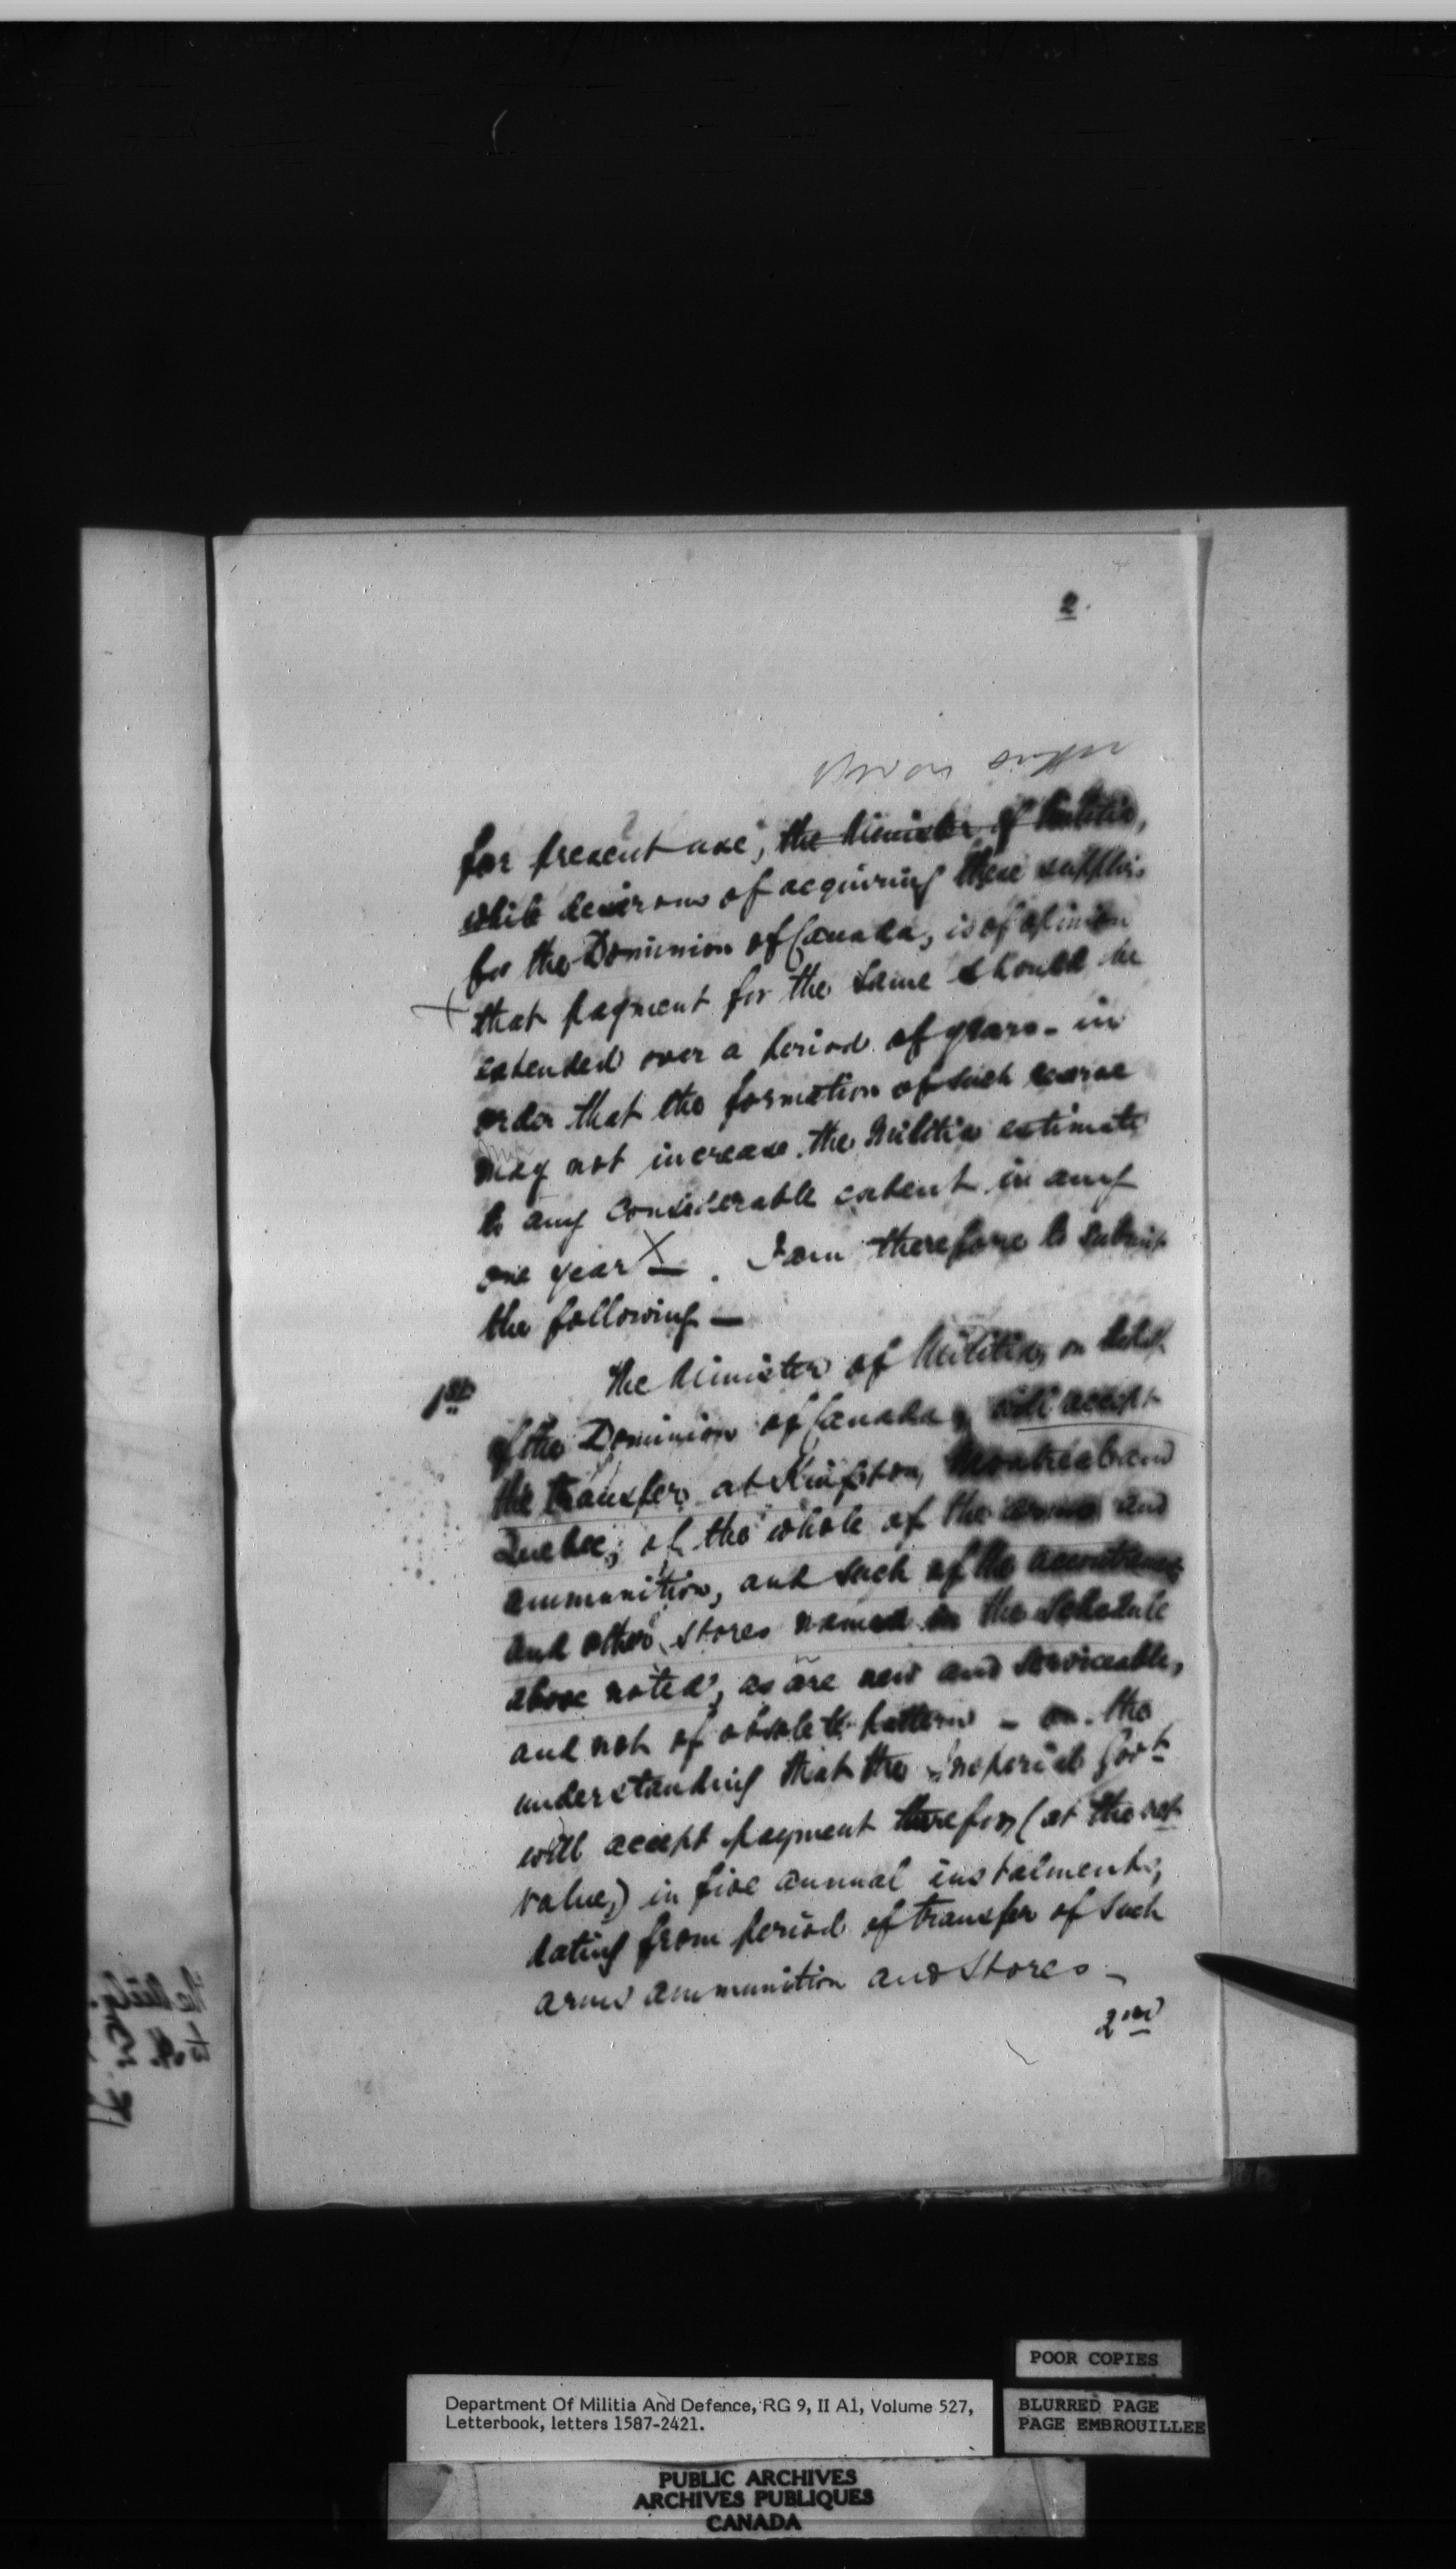 2.
for present use, the Minister of Militia,
while desirous of acquiring these supplies
for the Dominion of Canada, is of opinion
that payment for the same should be
extended over a period of years - in
order that the formation of such reserve
may not increase the Militia estimate
to any considerable extent in any
one year X — . I am therefore to submit
the following —
1st The Minister of Militia, on behalf
of the Dominion of Canada, will accept
the transfer, at Kingston, Montreal and
Quebec, of the whole of the arms and
ammunition, and such of the accoutrements
and other stores named in the Schedule
above noted, as are new and serviceable,
and not of obsolete pattern - on the
understanding that the Imperial Govt
will accept payment therefor, (at the
value,) in five annual instalments,
dating from period of transfer of such
arms ammunition and Stores —
2nd
POOR COPIES
Department Of Militia And Defence, RG 9, II A1, Volume 527,
Letterbook, letters 1587-2421.
BLURRED PAGE
PAGE EMBROUILLEE
PUBLIC ARCHIVES
ARCHIVES PUBLIQUES
CANADA